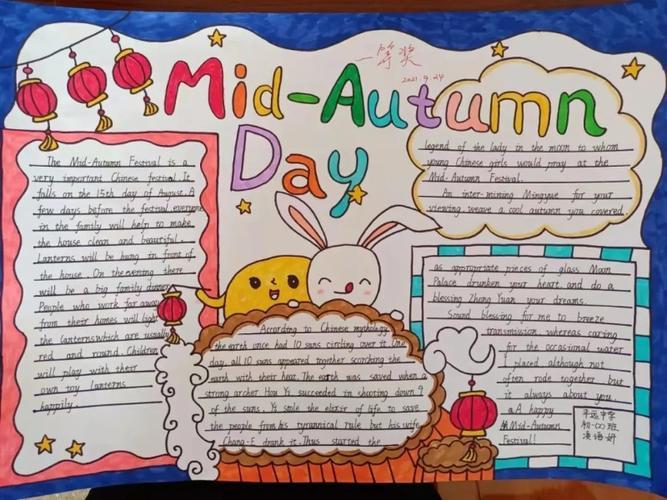 一等奖
2021.9.24
Mid-Autumn
Day
The Mid-Autumn Festival is a
very important Chinese festival. It
falls on the 15th day of August. A
few days before the festival, everyone
in the family will help to make
the house clean and beautiful.
Lanterns will be hung in front of
the house. On the evening there
will be a big family dinner.
People who work far away
from their homes will
the lanterns which are usually
red and round. Children
will play with their
own toy lanterns
happily.
According to Chinese mythology,
the earth once had 10 suns circling over it. One
day, all 10 suns appeared together scorching the
earth with their heat. The earth was saved when a
strong archer Hou Yi succeeded in shooting down 9
of the suns. Yi stole the elixir of life to save
the people from his tyrannical rule but his wife
Chang-E drank it. Thus started the
legend of the lady in the moon to whom
young Chinese girls would pray at the
Mid-Autumn Festival.
An inter-mining Mingyue for your
viewing, weave a cool autumn you covered.
as appropriate pieces of glass Moon
Palace drunken your heart, and do a
blessing Zhong Yuan your dreams.
Sound blessing for me to breeze
transmission whereas caring
for the occasional water
I placed although not
often rode together but
it always about you.
a A happy
Mid-Autumn
Festival!
平远中学